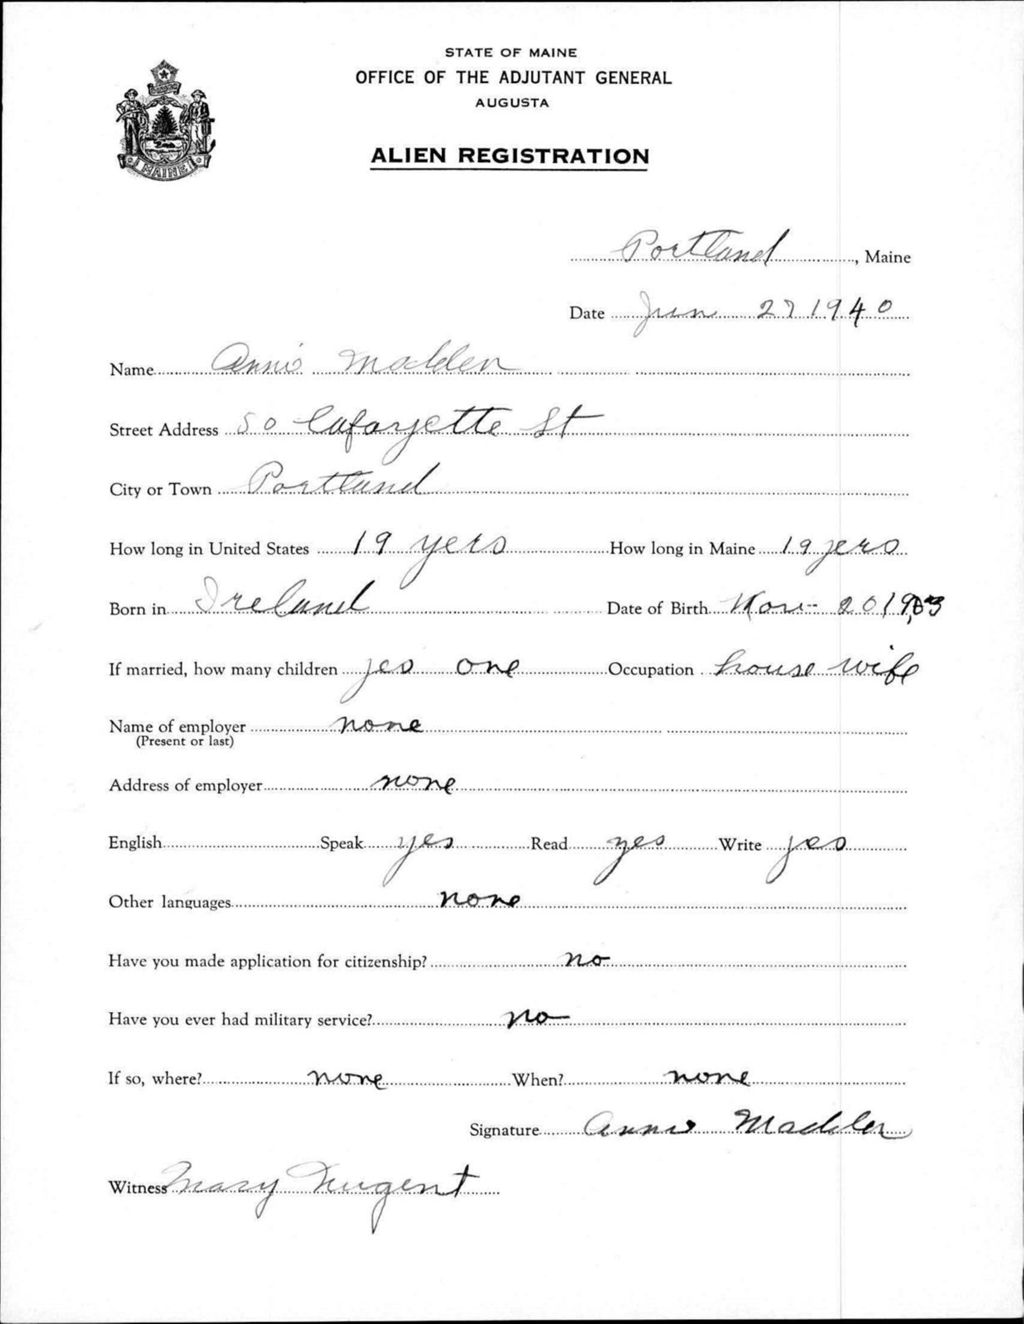 STATE OF MAINE
OFFICE OF THE ADJUTANT GENERAL
AUGUSTA
ALIEN REGISTRATION
MAINE
Portland, Maine
Date Jun 27 1940
Name Annie Madden
Street Address 50 Lafayette St
City or Town Portland
How long in United States 19 yers How long in Maine 19 yers
Born in Ireland Date of Birth Nov- 20 1903
If married, how many children yes one Occupation house wife
Name of employer none
(Present or last)
Address of employer none
English Speak yes Read yes Write yes
Other languages none
Have you made application for citizenship? no
Have you ever had military service? no
If so, where? none When? none
Signature Annie Madden
Witness Mary Nugent